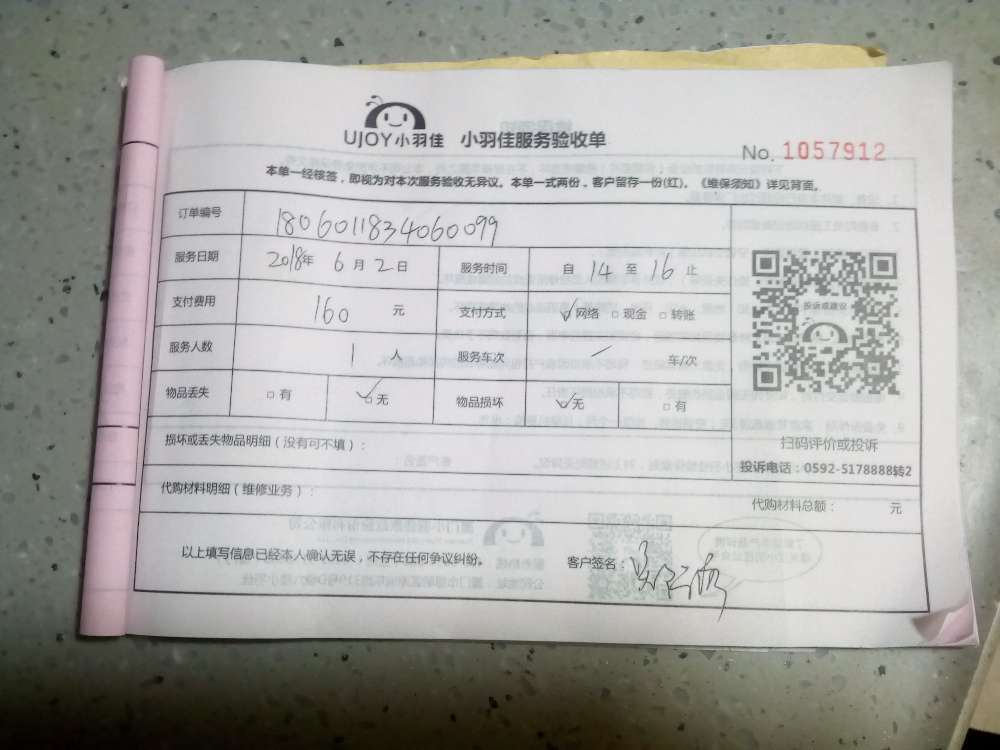 UJOY小羽佳 小羽佳服务验收单
No. 1057912
本单一经核签，即视为对本次服务验收无异议。本单一式两份，客户留存一份(红)。《维保须知》详见背面。
订单编号 1806011834060099
服务日期 2018年 6月2日 服务时间 自 14 至 16 止
支付费用 160 元 支付方式 ☑网络 □现金 □转账
服务人数 1 人 服务车次 / 车/次
物品丢失 □有 ☑无 物品损坏 ☑无 □有
投诉或建议
扫码评价或投诉
投诉电话：0592-5178888转2
损坏或丢失物品明细（没有可不填）：
代购材料明细（维修业务）：
代购材料总额： 元
以上填写信息已经本人确认无误，不存在任何争议纠纷。 客户签名：